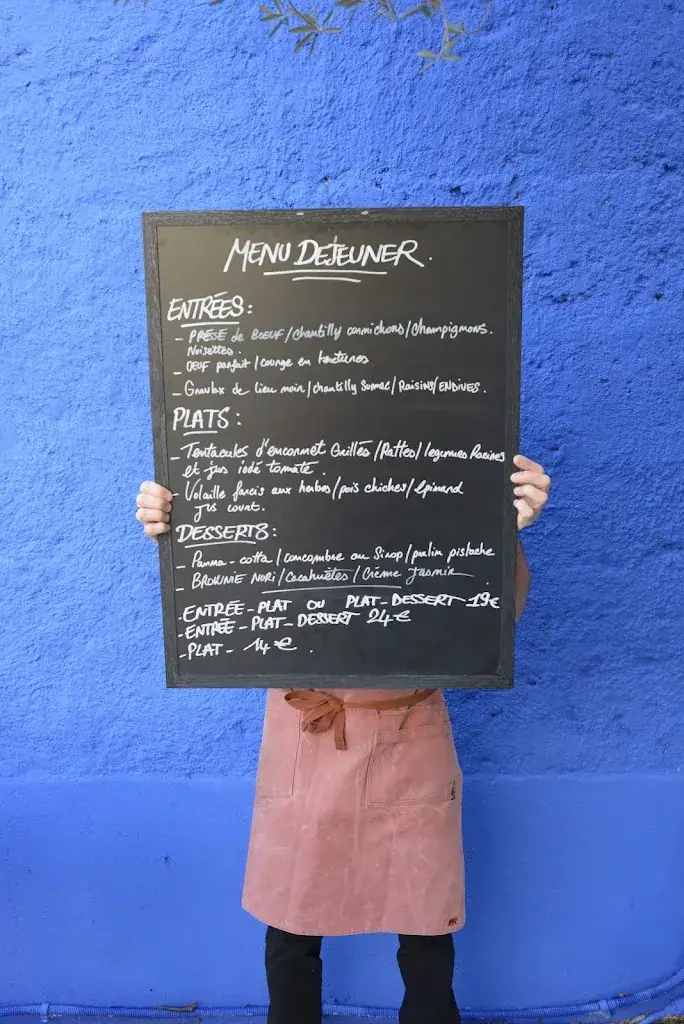 MENU DEJEUNER.
ENTRÉES:
- PRESSÉ de BOEUF/chantilly cornichons/champignons.
Noisettes.
- OEUF parfait/courge en textures
- Gravlax de lieu noir/chantilly Sumac/RAISINS/ENDIVES.
PLATS:
- Tentacules d'encornet Grillés/Rattes/légumes Racines
et jus iodé tomate.
- Volaille farcis aux herbes/pois chiches/épinard
jus court.
DESSERTS:
- Panna-cotta/concombre au Sirop/pralin pistache
- BROWNIE NORI/Cacahuètes/Crème Jasmin
- ENTRÉE-PLAT OU PLAT-DESSERT 19€
- ENTRÉE-PLAT-DESSERT 24€
- PLAT- 14€.